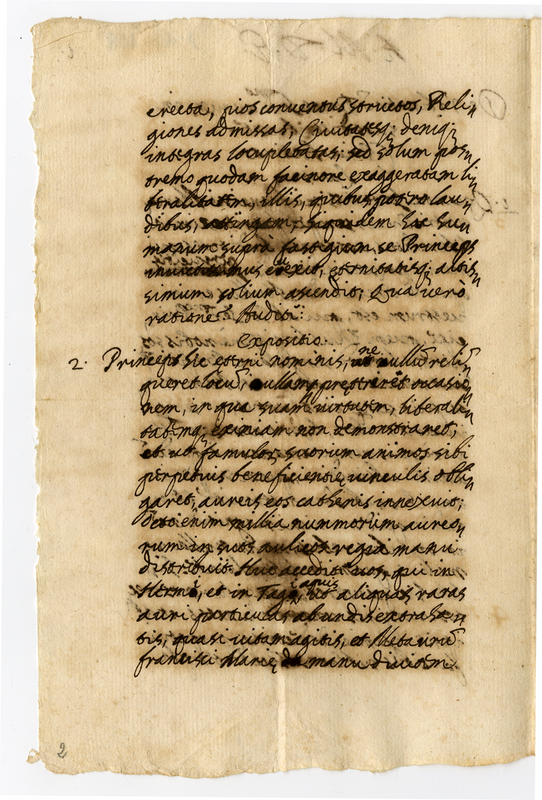 erecta, pios conventus structos, Reli„
giones admissas, Civitatesq; deniq;
integras locupletatas; sed solum pos„
tremo quodam facinore exaggeratam li„
beralitatem, illis, quibus potero lau„
dibus, attingam, siquidem hic hu„
manum supra fastigium se Princeps
erexit, eternitatisq; altis„
simum solium ascendit; Qua verò
ratione Audite:
Expositio.
2. Princeps hic eterni nominis, ne nullũ reli„
queret locũ, nullam pręteriret occasio„
nem, in qua suam virtutem, liberali„
tatemq; eximiam non demonstraret;
et ut famulor suorum animos sibi
perpetuis beneficientię vinculis obli„
garet, aureis eos cathenis innexuit;
enim millia nummorum aureo„
rum in suos aulicos regia manu
distribuit. Huc accedite vos, qui in
Hermi, et in Tagi aquis, ut aliquas raras
auri particulas ab undis extraha„
tis, quasi vitam agitis, et Metaurũ
francisci Marię manu divitem
2